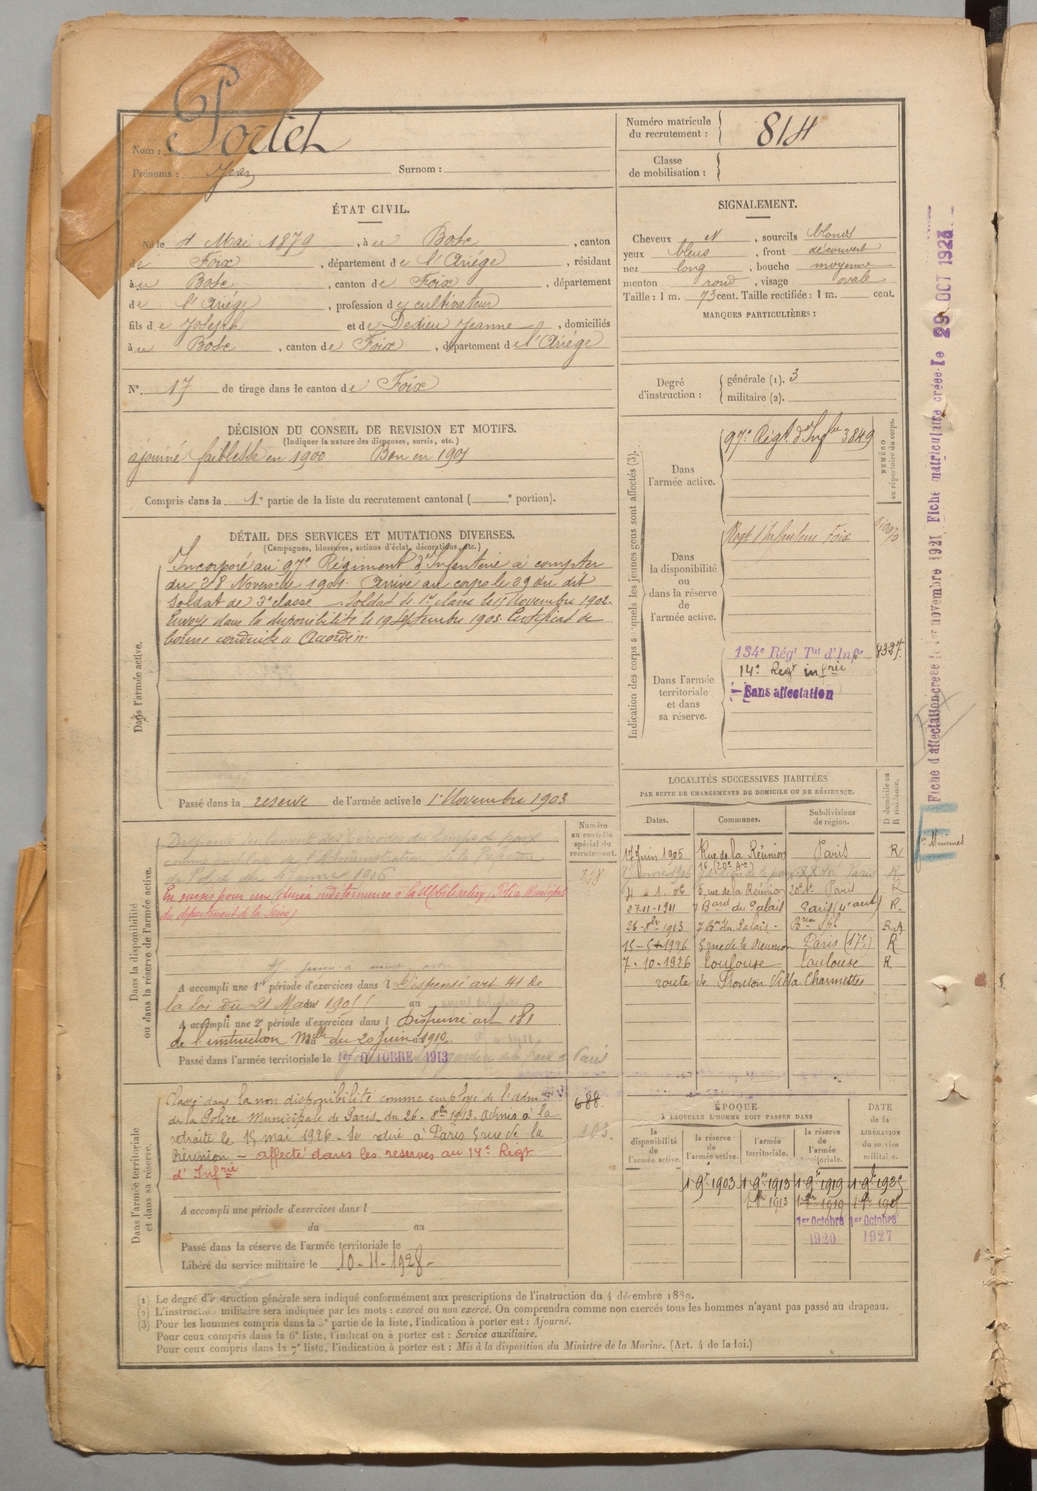 Nom : Portet
Prénoms : Jean Surnom :
Numéro matricule du recrutement : 814
Classe de mobilisation :
ÉTAT CIVIL.
Né le 4 Mai 1879, à Bosc, canton
de Foix, département de l'Ariège, résidant
à Bosc, canton de Foix, département
de l'Ariège, profession de cultivateur
fils de Joseph et de Dedieu Jeanne, domiciliés
à Bosc, canton de Foix, département de l'Ariège
N° 17 de tirage dans le canton de Foix
SIGNALEMENT.
Cheveux et, sourcils blonds
yeux bleus, front découvert
nez long, bouche moyenne
menton rond, visage ovale
Taille : 1 m. 73 cent. Taille rectifiée : 1 m. cent.
MARQUES PARTICULIÈRES :
Degré d'instruction :
générale (1). 3
militaire (2).
DÉCISION DU CONSEIL DE REVISION ET MOTIFS.
(Indiquer la nature des dispenses, sursis, etc.)
ajourné faiblesse en 1900 Bon en 1901
Compris dans la 1e partie de la liste du recrutement cantonal ( e portion).
DÉTAIL DES SERVICES ET MUTATIONS DIVERSES.
(Campagnes, blessures, actions d'éclat, décorations, etc.)
Dans l'armée active.
Incorporé au 97e Régiment d'Infanterie à compter
du Novembre 1901 Arrivé au corps le 29 du dit
Soldat de 2e classe Soldat de 1re classe le Novembre 1902.
Envoyé dans la disponibilité le 19 septembre 1903. Certificat de
bonne conduite Accordé.
Passé dans la réserve de l'armée active le 1er Novembre 1903
Indication des corps auxquels les jeunes gens sont affectés (3).
NUMÉRO au répertoire du corps.
Dans l'armée active.
97e Régt d'Infrie 3849
Dans la disponibilité ou dans la réserve de l'armée active.
Regt d'Infanterie Foix
Dans l'armée territoriale et dans sa réserve.
134e Régt Tal d'Infie
14e Regt infrie
Sans affectation
LOCALITÉS SUCCESSIVES HABITÉES
PAR SUITE DE CHANGEMENTS DE DOMICILE OU DE RÉSIDENCE.
Dates. Communes. Subdivisions de région. D domicile ou R résidence.
17 Juin 1905 Rue de la Réunion Paris R
16 (20e Ar)
4 - 1 - 06 rue de la Réunion 20e Ar Paris R
27-11-1911 7 Bard du Palais Paris (4e art) R
26-8bre 1913 7 Bd du Palais
15-5-1926 5 rue de la Réunion Paris (17e) R
7-10-1926 Toulouse Toulouse R
route de Villa Charmettes
Dans la disponibilité ou dans la réserve de l'armée active.
Numéro au contrôle spécial du recrutement.
A accompli une 1re période d'exercices dans l Dispensé art 41 de
la loi du 21 Mars 1905 au
A accompli une 2e période d'exercices dans l Dispensé art 181
de l'instruction Mlle du 20 Juin 1910
Passé dans l'armée territoriale le 1er OCTOBRE 1913
Dans l'armée territoriale et dans sa réserve.
Classé dans la non disponibilité comme employé de l'adm
de la Police Municipale de Paris, du 26 8bre 1913. Admis à la
retraite le 15 mai 1926. Se retire à Paris 5 rue de la
Réunion – affecté dans les réserves au 14e Régt
d'Infrie
688
A accompli une période d'exercices dans l
du au
Passé dans la réserve de l'armée territoriale le
Libéré du service militaire le 10-11-1928
ÉPOQUE
À LAQUELLE L'HOMME DOIT PASSER DANS
DATE DE LA LIBÉRATION du service militaire.
la disponibilité de l'armée active. la réserve de l'armée active. l'armée territoriale. la réserve de l'armée territoriale.
1 9bre 1903 1 9bre 1913 1 9bre 1919 1 9bre 1925
1er Octobre 1920 1er Octobre 1927
(1) Le degré d'instruction générale sera indiqué conformément aux prescriptions de l'instruction du 4 décembre 1889.
(2) L'instruction militaire sera indiquée par les mots : exercé ou non exercé. On comprendra comme non exercés tous les hommes n'ayant pas passé au drapeau.
(3) Pour les hommes compris dans la 5e partie de la liste, l'indication à porter est : Ajourné.
Pour ceux compris dans la 6e liste, l'indication à porter est : Service auxiliaire.
Pour ceux compris dans la 7e liste, l'indication à porter est : Mis à la disposition du Ministre de la Marine. (Art. 4 de la loi.)
Fiche d'affectation créée le 1er novembre 1921 Fiche matriculaire créée le 29 OCT 1923